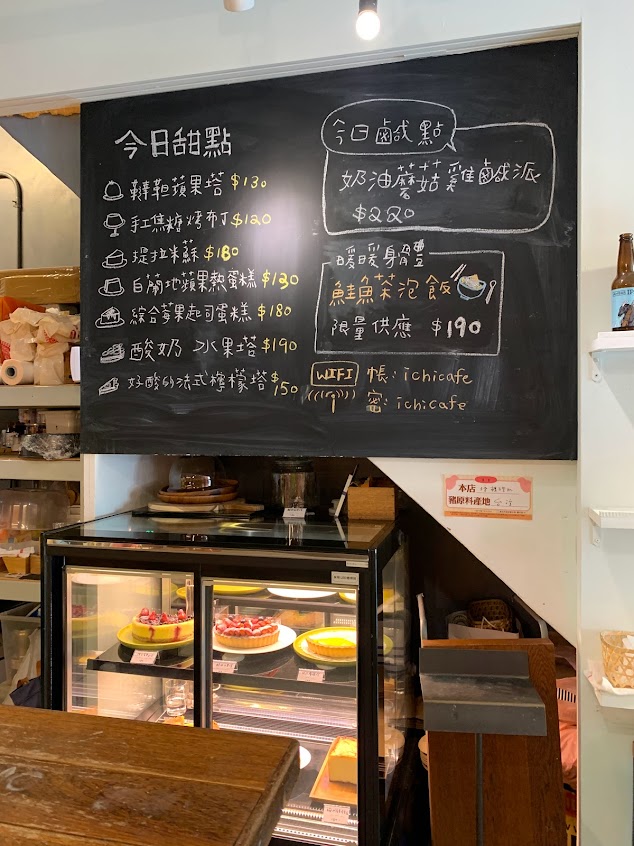 今日甜點
韃靼蘋果塔 $130
手工焦糖烤布丁 $120
提拉米蘇 $180
白蘭地蘋果熱蛋糕 $130
綜合莓果起司蛋糕 $180
酸奶 水果塔 $190
好酸的法式檸檬塔 $150
今日鹹點
奶油蘑菇雞鹹派
$220
暖暖身體
鮭魚茶泡飯
限量供應 $190
WIFI 帳: ichicafe
密: ichicafe
本店
豬原料產地